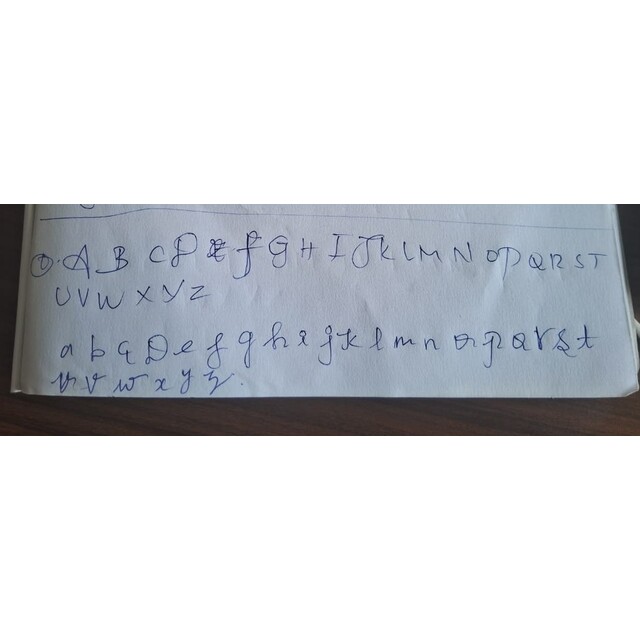 ①. A B C D E F G H I J K L M N O P Q R S T
U V W X Y Z
a b c D e f g h i j k l m n o p q r s t
u v w x y z.